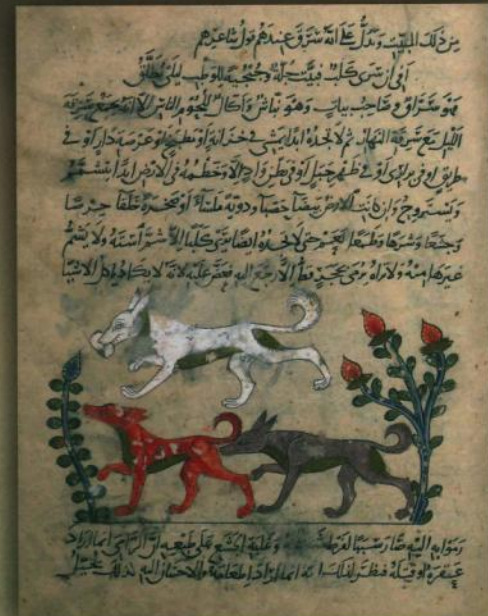 من ذلك المبيت ويدل على انه سرق عندهم قول شاعرهم
افي أن سرى كلب فبيت جلة وجبجبة للوطب ليلى تطلق
فهو سراق وصاحب بيات وهو نباش واكال للحوم الناس الا انه يجمع سرقة
الليل مع سرقة النهار ثم لا تجده ابدا يمشي في خزانة او مطبخ او عرصة دار او في
طريق او في براري او في ظهر جبل او في بطن واد الا وخطمه في الارض ابدا يتشمم
ويستروح وان كانت الارض بيضا حصا ودوية ملسا او صخرة خلقا حرصا
وجشعا وشرها وطمعا نعم حتى لا تجده ايضا يرى كلبا الا شم استه ولا يشم
غيرها منه ولا تراه يرمى بحجر قط الا رجع اليه فعض عليه لانه لا يكاد ياكل الا شيا
رموا به اليه صار سببا لفرط شرهه وغلبة الجشع على طبعه ان الرامي انما اراد
عقره او قتله فظن لذلك انه انما اراد اطعامه والاحسان اليه لذلك يخيل